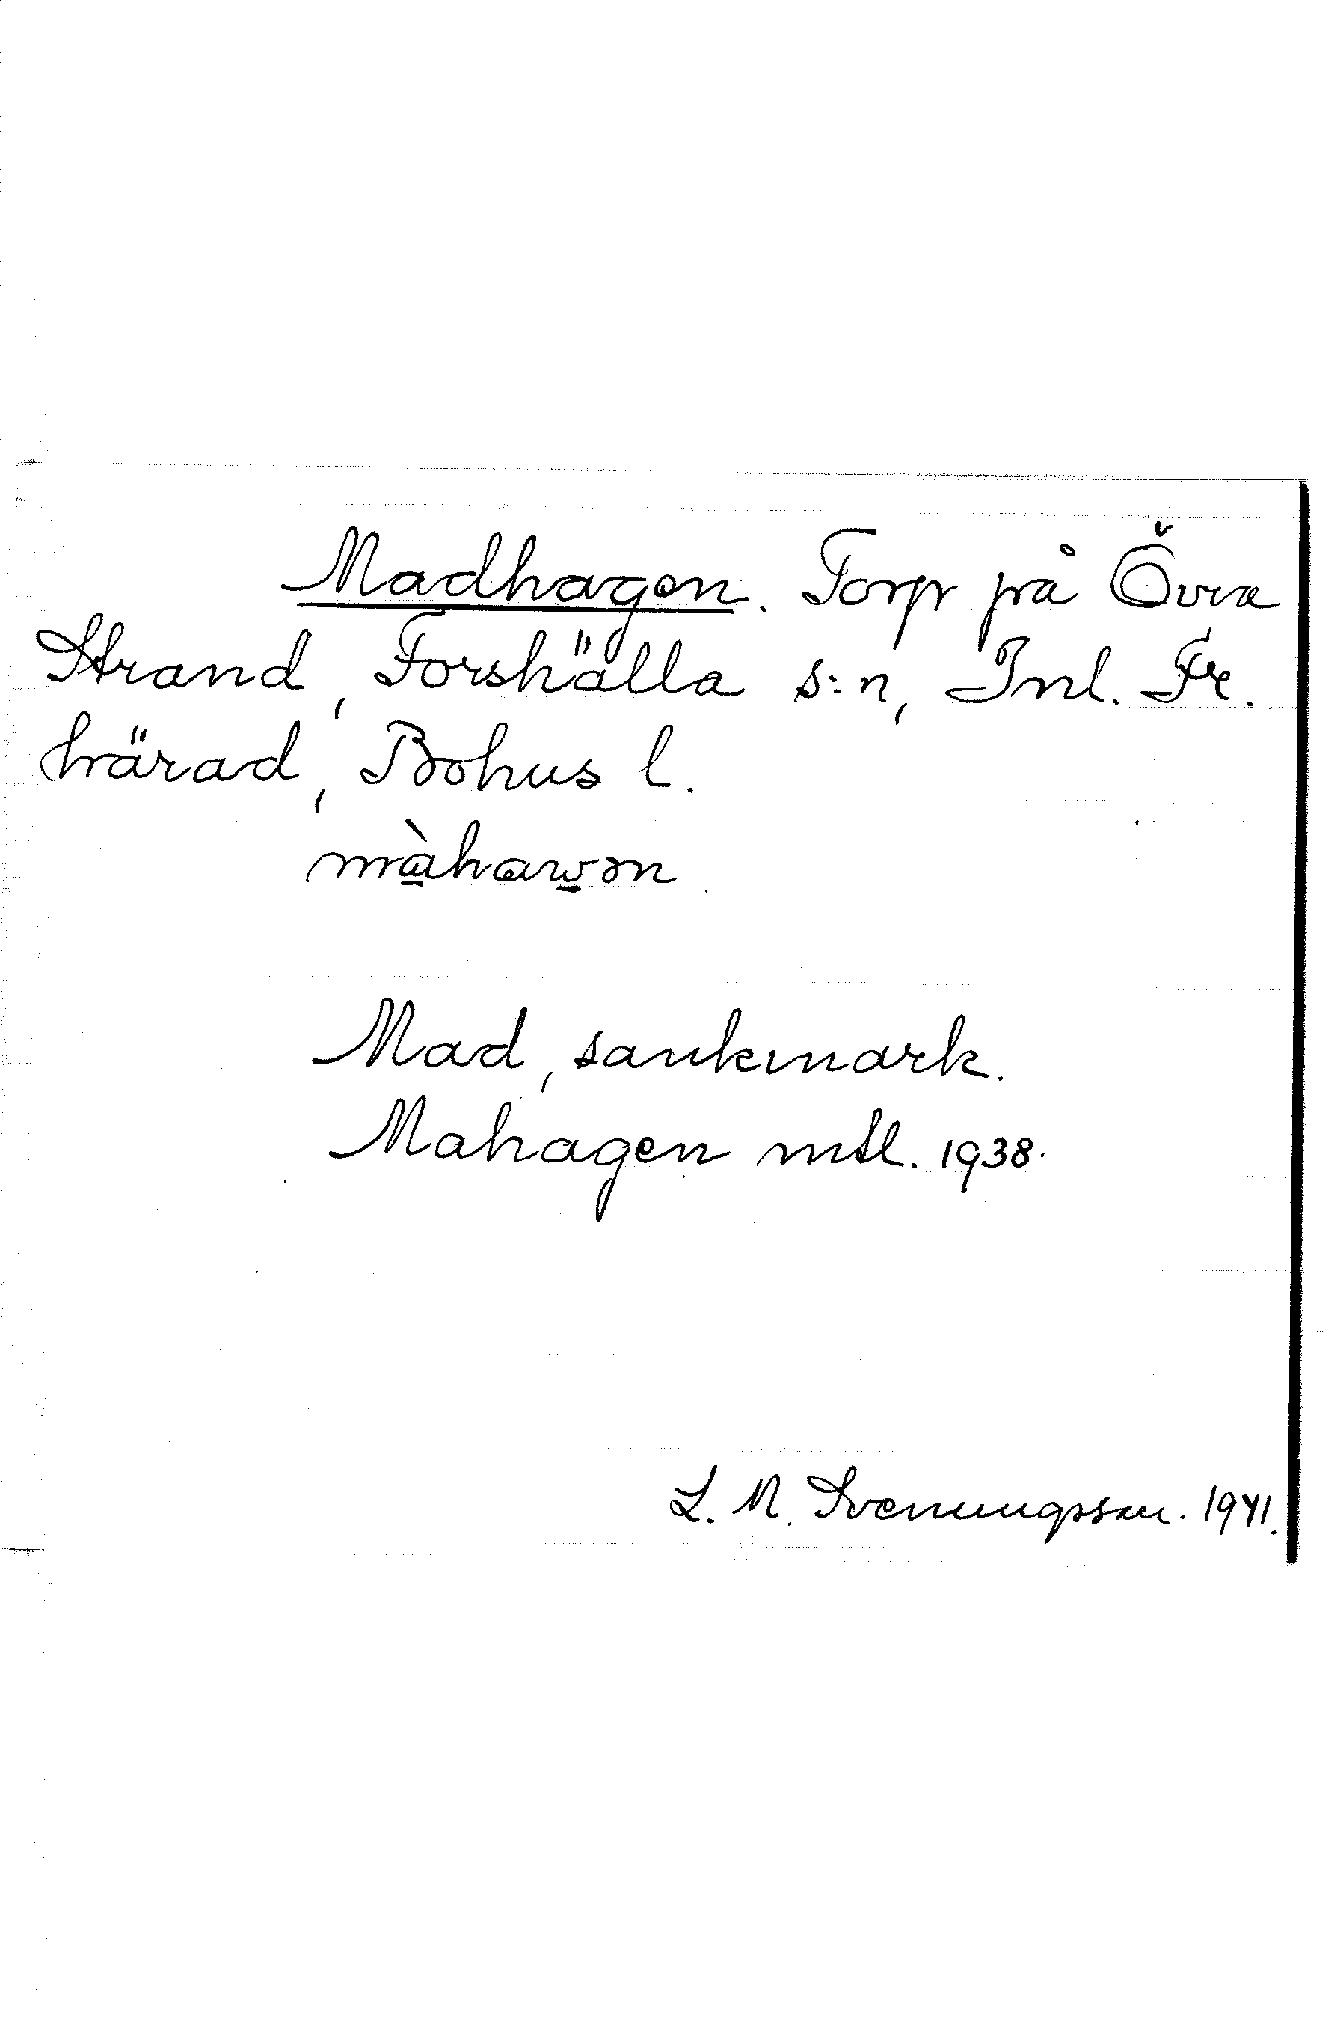 Madhagen. Torp på Övra
Strand, Forshälla s:n, Inl. Fr.
härad, Bohus l.
màhawən
Mad, sankmark.
Mahagen mtl. 1938.
L. M. Svenungsson. 1941.